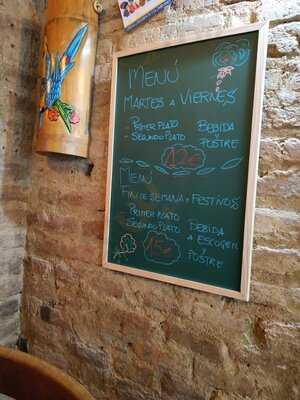 MENÚ
MARTES A VIERNES
- PRIMER PLATO
- SEGUNDO PLATO
BEBIDA
POSTRE
12€
MENÚ
FIN DE SEMANA Y FESTIVOS
- PRIMER PLATO
- SEGUNDO PLATO
BEBIDA
A ESCOGER
Y
POSTRE
15€